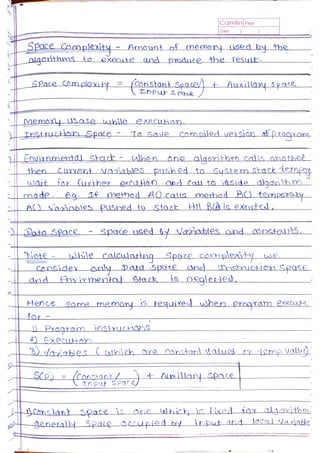 Camlin Page
Date / /
Space Complexity - Amount of memory used by the
algorithms to execute and produce the result.
Space complexity = (Constant Space/) + Auxillary Space
Input Space
Memory usage while execution.
Instruction Space - To save compiled version of program
Envirnmental Stack - When one algorithm calls another
then current variables pushed to system stack
wait for further excution and call to inside algorithm
made eg. If method A() calls method B() temporary
A() variables pushed to stack till B() is excuted.
Data space - space used by variables and constants.
Note - While calculating space complexity we
consider only Data space and Instruction space
and Envirmental Stack is neglected.
Hence some memory is required when program execute
for -
1) Program instructions
2) Execution
3) Variables (which are constant values or temp value)
S(P) = (Constant/ ) + Auxillary Space
Input Space
1) Constant space is one which is fixed for algorithm
generally space occupied by input and local variable